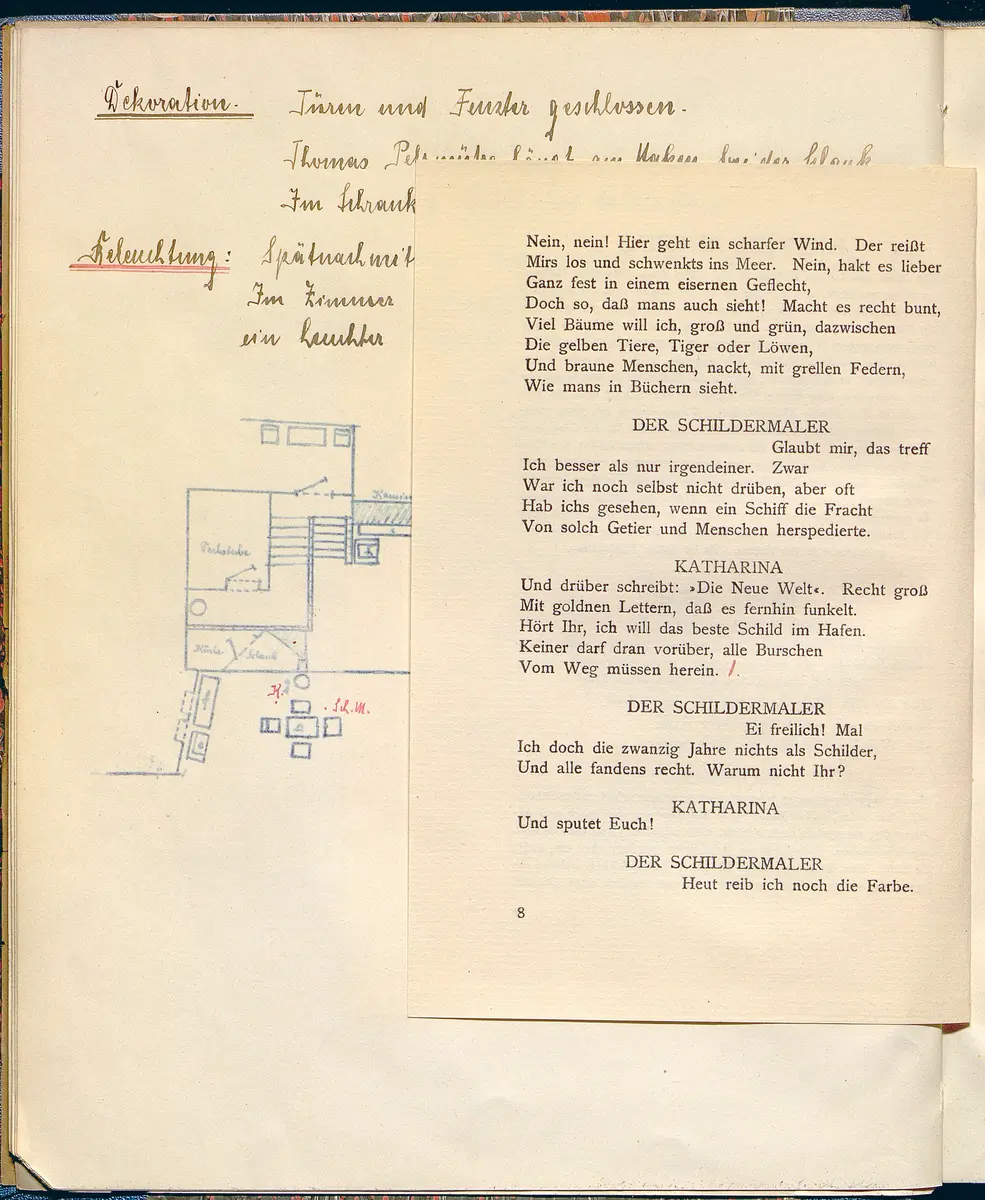 Dekoration. Türen und Fenster geschlossen.
Thomas
Im Schrank
Beleuchtung: Spätnachmit
Im Zimmer
ein Leuchter
Kamin
Küche Schank
K. Sch. M.
Nein, nein! Hier geht ein scharfer Wind. Der reißt
Mirs los und schwenkts ins Meer. Nein, hakt es lieber
Ganz fest in einem eisernen Geflecht,
Doch so, daß mans auch sieht! Macht es recht bunt,
Viel Bäume will ich, groß und grün, dazwischen
Die gelben Tiere, Tiger oder Löwen,
Und braune Menschen, nackt, mit grellen Federn,
Wie mans in Büchern sieht.
DER SCHILDERMALER
Glaubt mir, das treff
Ich besser als nur irgendeiner. Zwar
War ich noch selbst nicht drüben, aber oft
Hab ichs gesehen, wenn ein Schiff die Fracht
Von solch Getier und Menschen herspedierte.
KATHARINA
Und drüber schreibt: »Die Neue Welt«. Recht groß
Mit goldnen Lettern, daß es fernhin funkelt.
Hört Ihr, ich will das beste Schild im Hafen.
Keiner darf dran vorüber, alle Burschen
Vom Weg müssen herein. 1.
DER SCHILDERMALER
Ei freilich! Mal
Ich doch die zwanzig Jahre nichts als Schilder,
Und alle fandens recht. Warum nicht Ihr?
KATHARINA
Und sputet Euch!
DER SCHILDERMALER
Heut reib ich noch die Farbe.
8